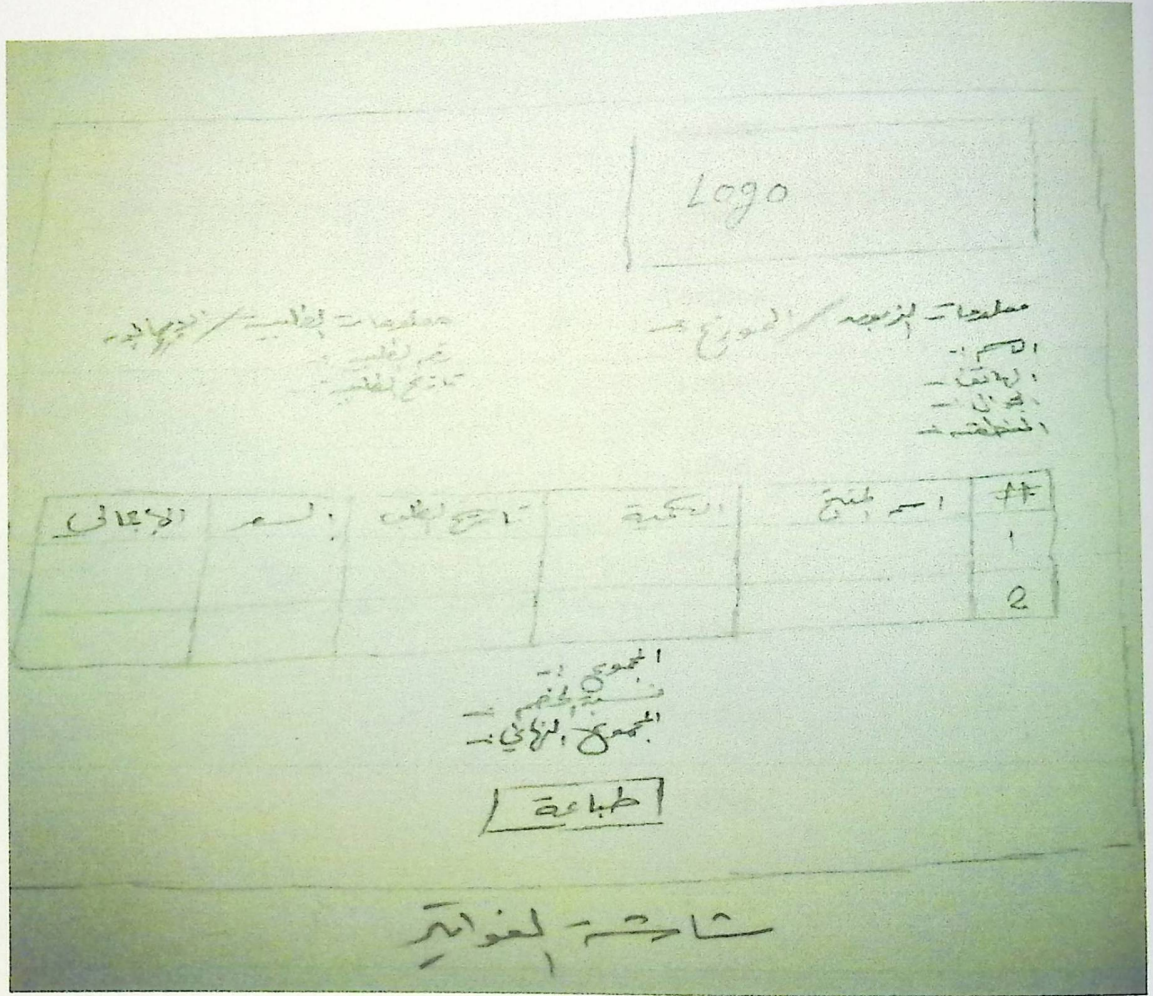 Logo
معلومات الزبون / المورد :-
الاسم :-
الهاتف :-
العنوان :-
المنطقة :-
معلومات الطلبية /
رقم الطلب :
تاريخ الطلب :
# اسم المنتج الكمية تاريخ الطلب السعر الاجمالي
1
2
المجموع :-
نسبة الخصم :-
المجموع النهائي :-
طباعة
شاشة الفواتير